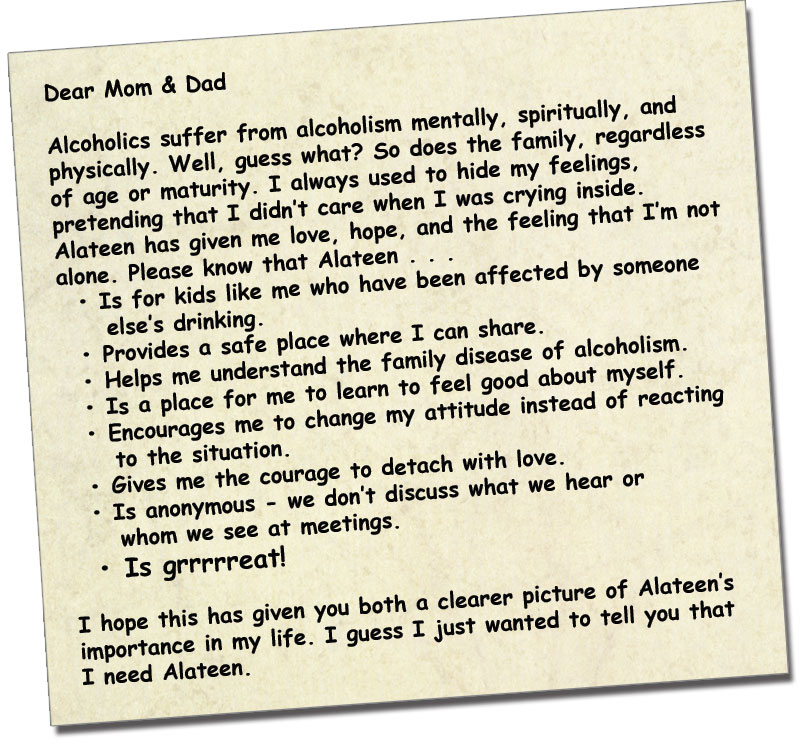 Dear Mom & Dad
Alcoholics suffer from alcoholism mentally, spiritually, and
physically. Well, guess what? So does the family, regardless
of age or maturity. I always used to hide my feelings,
pretending that I didn't care when I was crying inside.
Alateen has given me love, hope, and the feeling that I'm not
alone. Please know that Alateen . . .
• Is for kids like me who have been affected by someone
else's drinking.
• Provides a safe place where I can share.
• Helps me understand the family disease of alcoholism.
• Is a place for me to learn to feel good about myself.
• Encourages me to change my attitude instead of reacting
to the situation.
• Gives me the courage to detach with love.
• Is anonymous - we don't discuss what we hear or
whom we see at meetings.
• Is grrrrreat!
I hope this has given you both a clearer picture of Alateen's
importance in my life. I guess I just wanted to tell you that
I need Alateen.